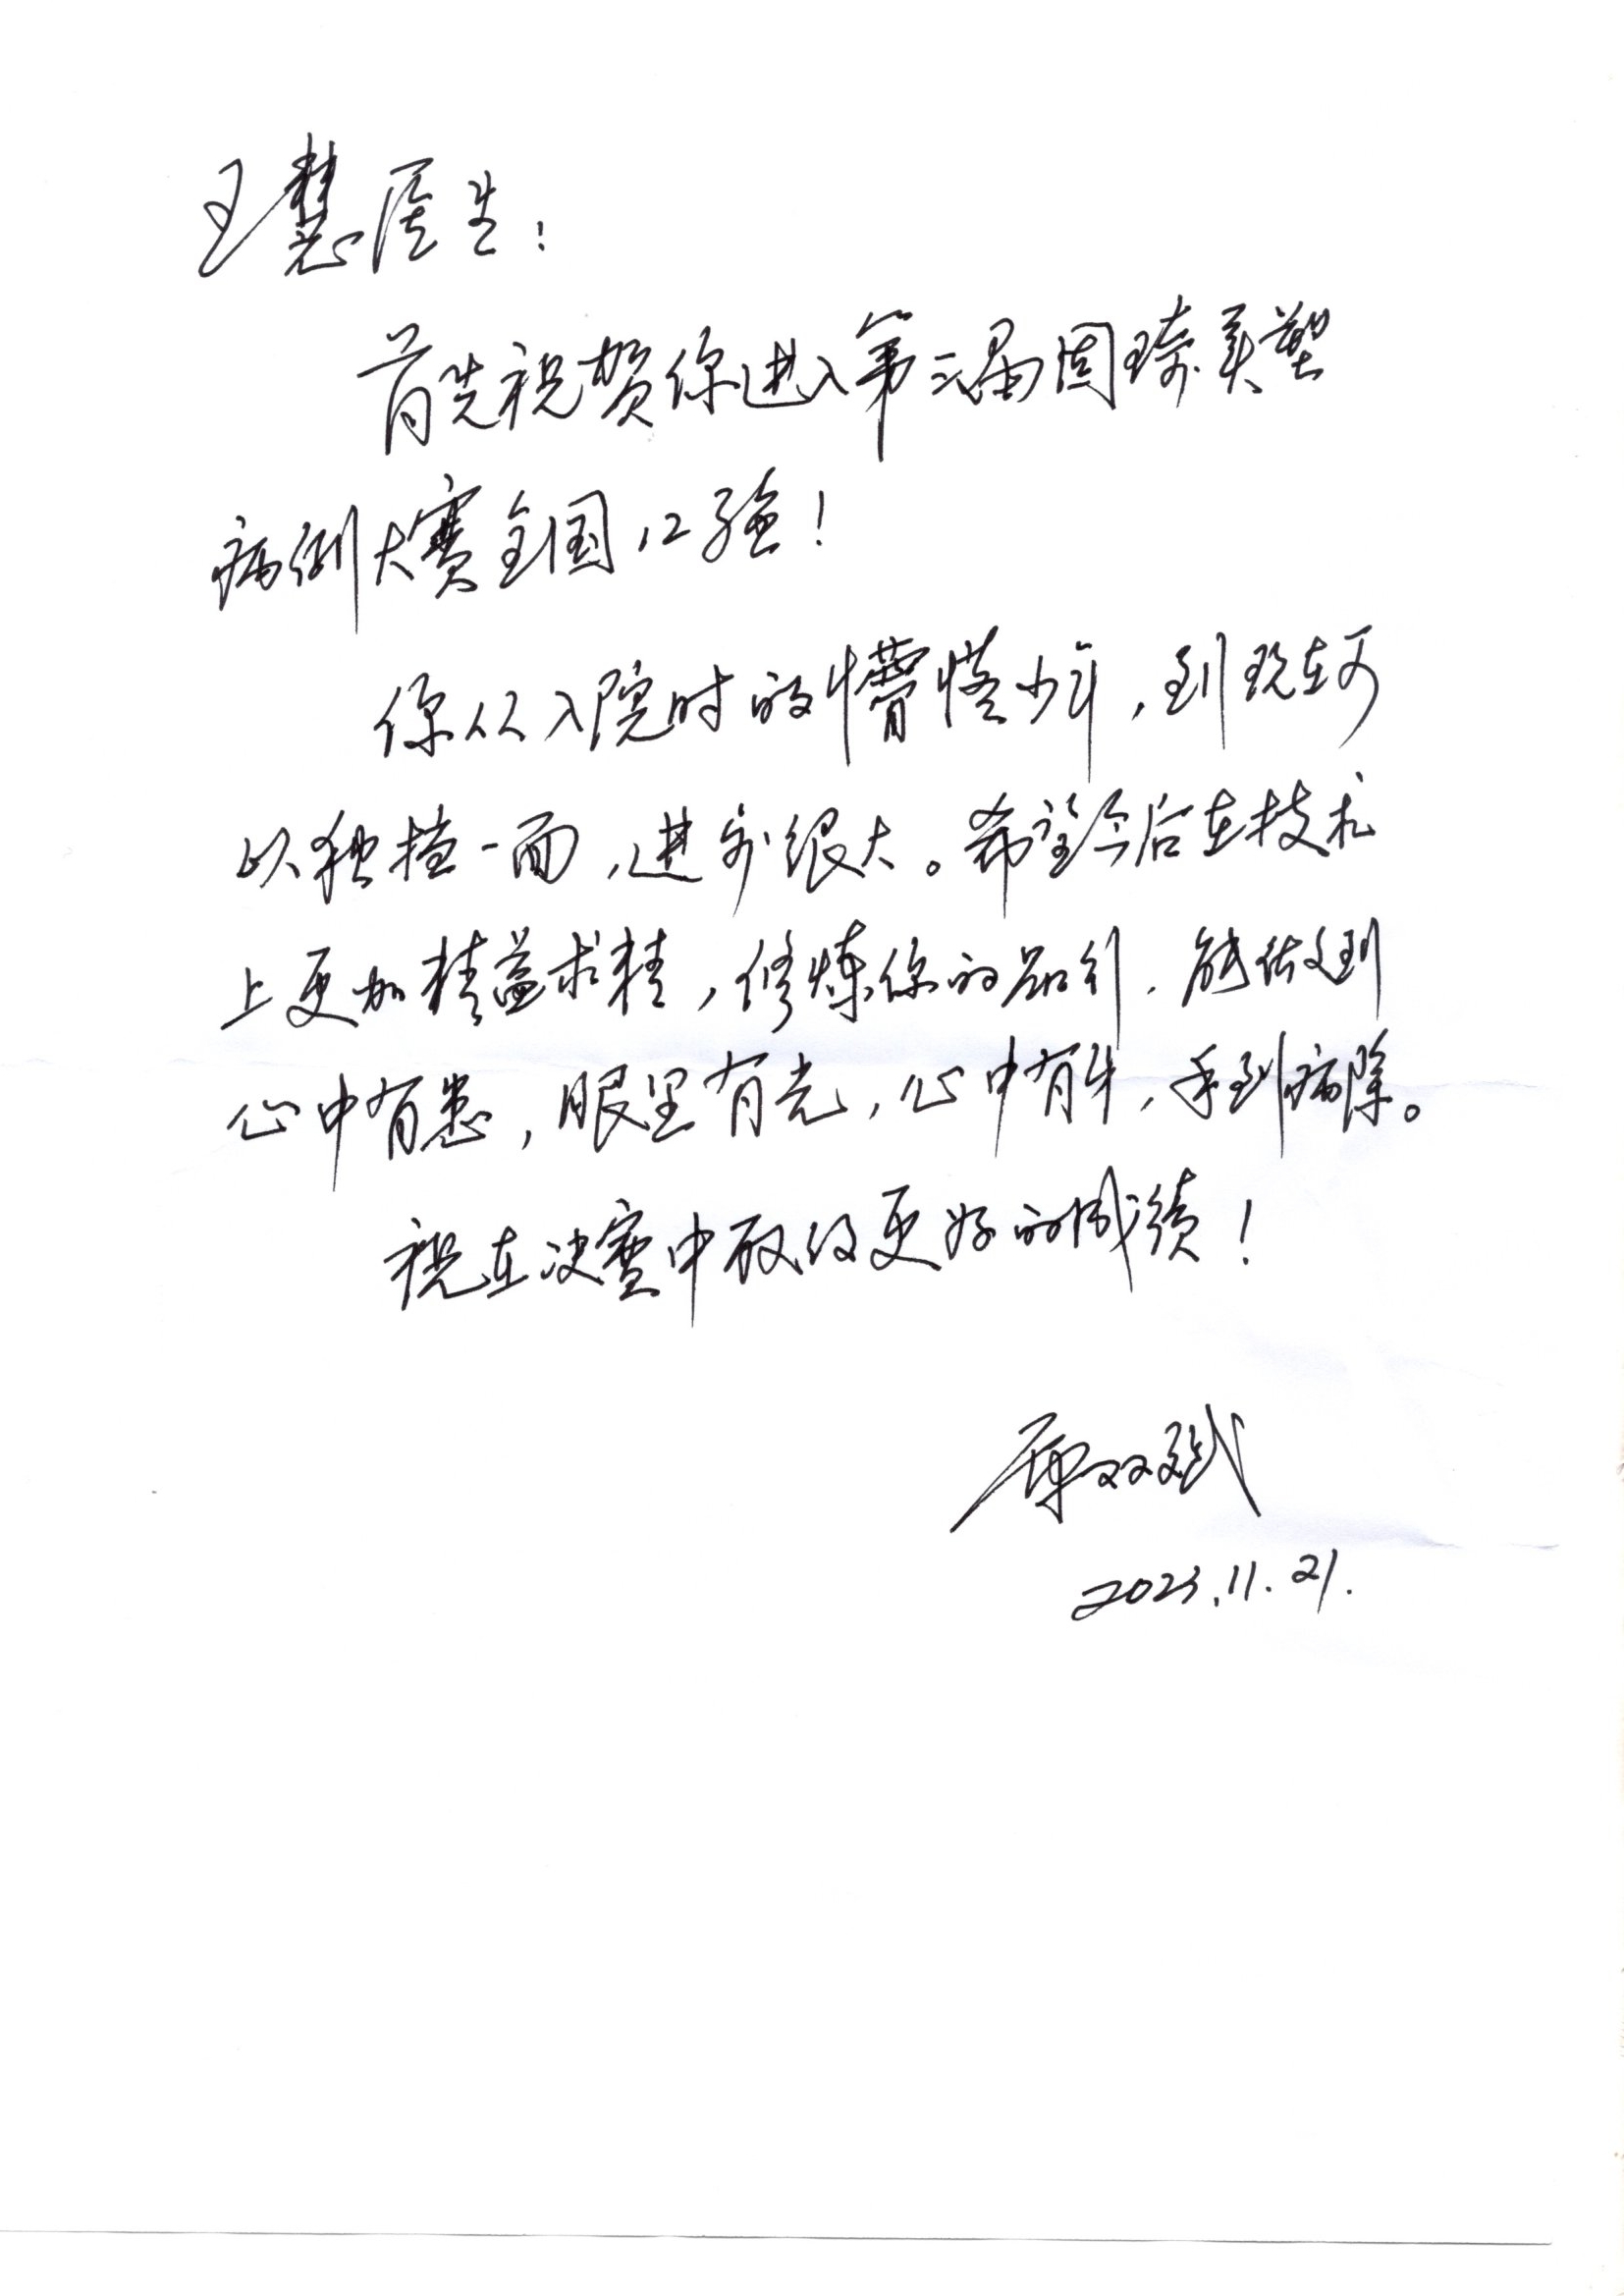 王慧医生：
首先祝贺你进入第三届固琦美塑
病例大赛全国12强！
你从入院时的懵懂少年，到现在可
以独挡一面，进步很大。希望今后在技术
上更加精益求精，修炼你的品行，能做到
心中有患，眼里有光，心中有牛，手到病除。
祝在决赛中取得更好的成绩！
双斌
2023.11.21.